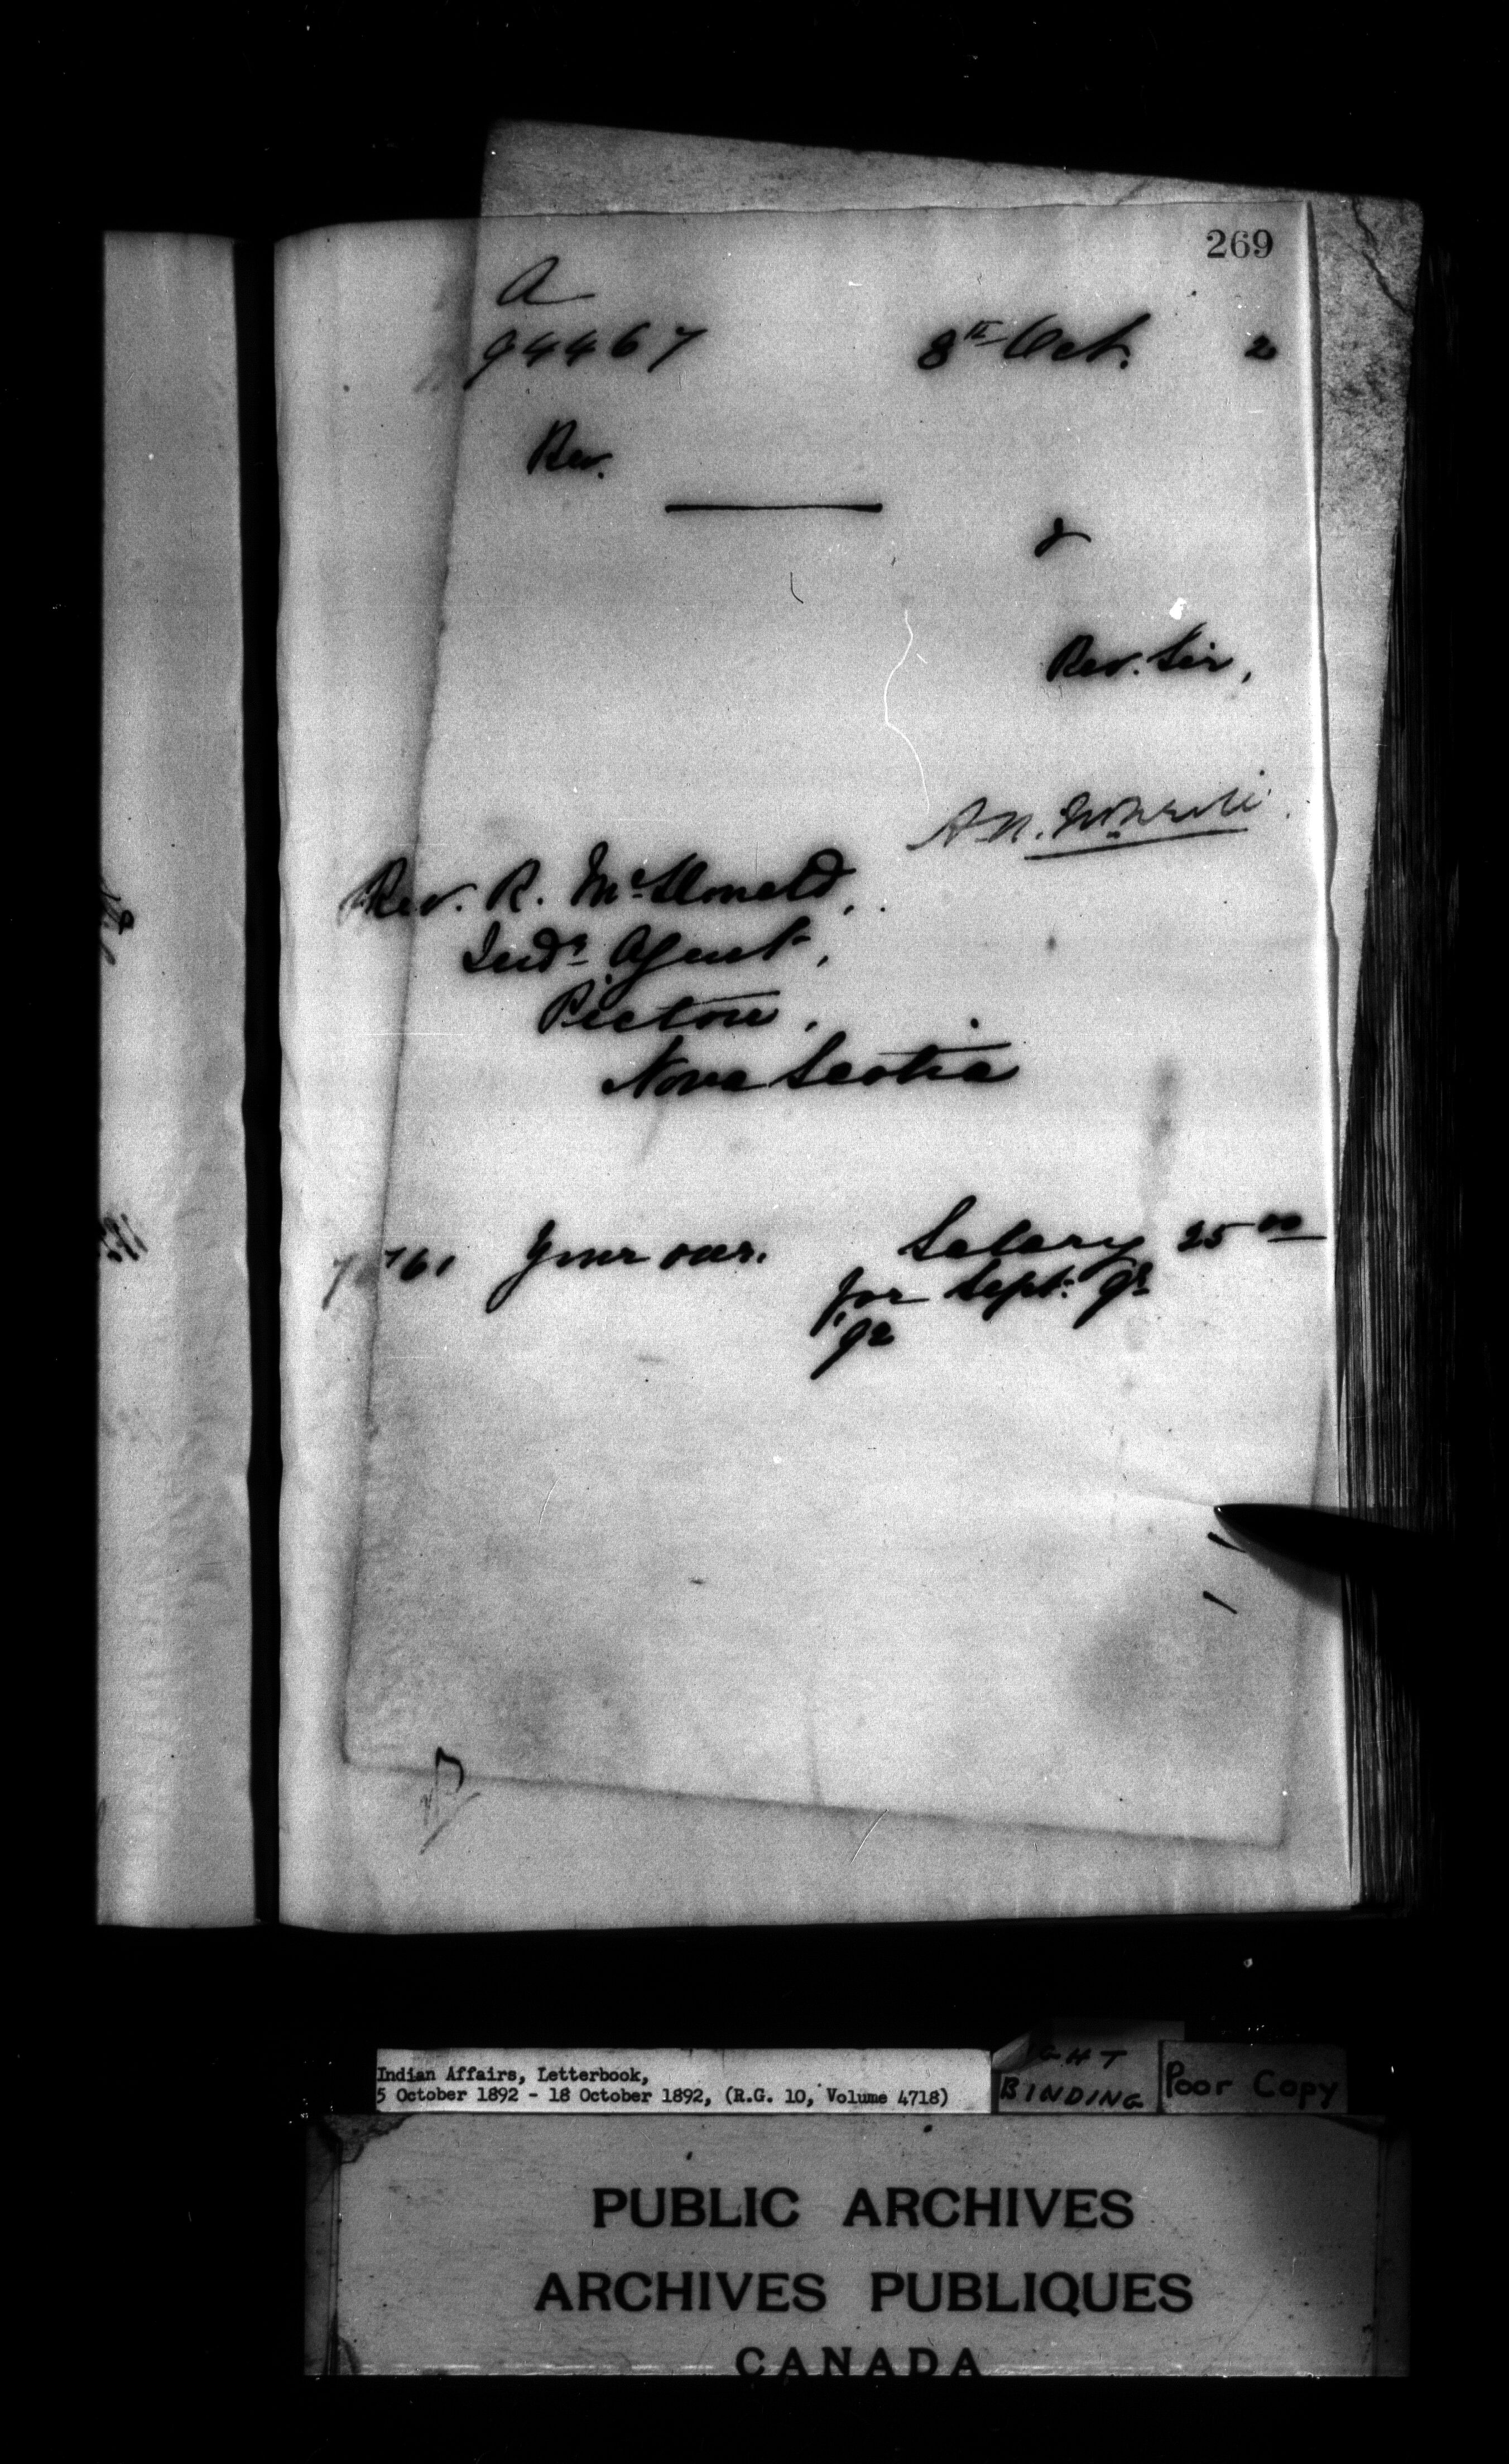 269
A
94467 8th Oct. 2
Rev.
&
Rev. Sir,
A. N. McNeill
Rev. R. McDonald,
Indn. Agent,
Pictou,
Nova Scotia
761 Your serv. Salary 25 00
for Sept. qr
'92
Indian Affairs, Letterbook,
5 October 1892 - 18 October 1892, (R.G. 10, Volume 4718)
GHT
BINDING
Poor Copy
PUBLIC ARCHIVES
ARCHIVES PUBLIQUES
CANADA